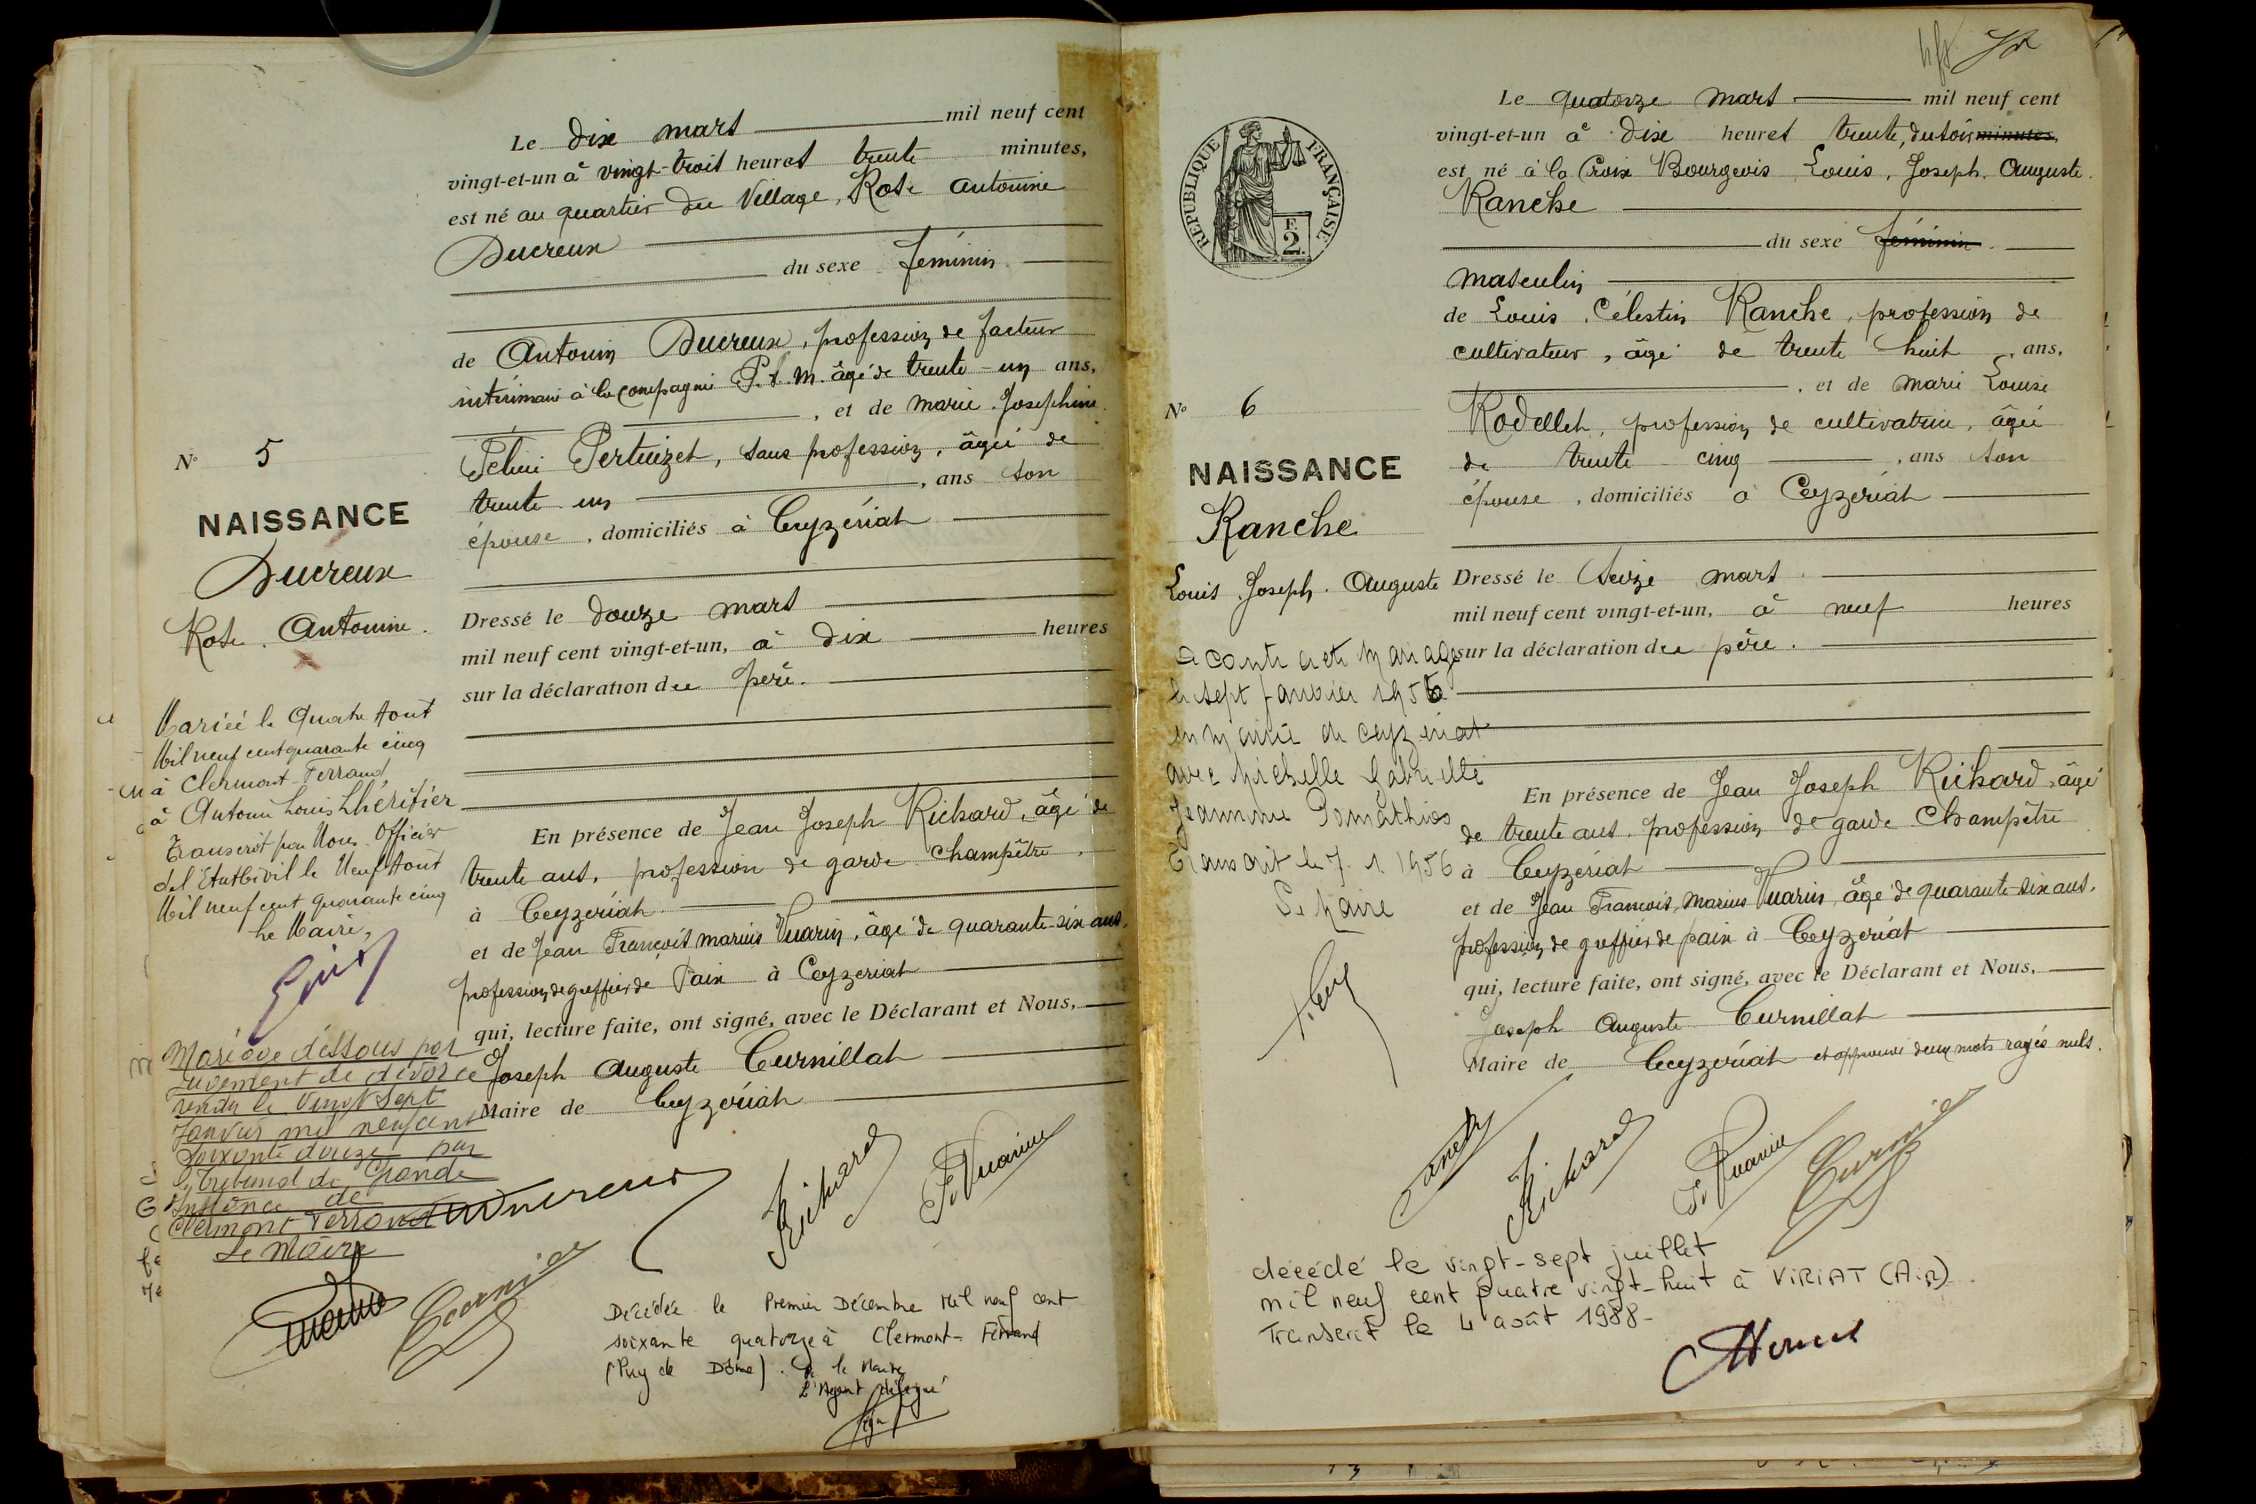 Le dix mars mil neuf cent
vingt-et-un à vingt-trois heures trente minutes,
est né au quartier du Village, Rose Antonine
Ducreux
du sexe féminin
de Antonin Ducreux, profession de facteur
intérimaire à la Compagnie P.L.M. âgé de trente-un ans,
, et de Marie Joséphine
Félicie Pertuizet, sans profession, âgée de
trente un , ans son
épouse, domiciliés à Ceyzériat
N° 5
NAISSANCE
Ducreux
Rose Antonine.
Dressé le douze mars
mil neuf cent vingt-et-un, à dix heures
sur la déclaration du père.
Mariée le Quatre Août
Mil neuf cent quarante cinq
à Clermont-Ferrand
à Antoine Louis Lhéritier
Transcrit par Nous Officier
del'État Civil le Neuf Août
Mil neuf cent quarante cinq
Le Maire,
En présence de Jean Joseph Richard, âgé de
trente ans, profession de garde champêtre,
à Ceyzériat
et de Jean François Marius Vuarin, âgé de quarante-six ans,
profession de greffier de Paix à Ceyzériat
qui, lecture faite, ont signé, avec le Déclarant et Nous,
Joseph Auguste Curnillat
Maire de Ceyzériat
Mariage dissous par
Jugement de divorce
rendu le Vingt Sept
Janvier mil neuf cent
Soixante douze par
le Tribunal de Grande
Instance de
Clermont Ferrand
Le Maire
Ducreux
Richard
Vuarin
Décédée le Premier Décembre Mil neuf cent
soixante quatorze à Clermont-Ferrand
(Puy de Dôme). P. le Maire
L'Agent délégué
REPUBLIQUE FRANÇAISE
F.
2.
Le quatorze mars mil neuf cent
vingt-et-un à dix heures trente, du soir minutes,
est né à la Croix Bourgeois Louis, Joseph, Auguste.
Ranche
du sexe féminin
masculin
de Louis, Célestin Ranche, profession de
cultivateur, âgé de trente huit , ans,
, et de Marie Louise
Rodellet, profession de cultivatrice, âgée
de trente cinq , ans son
épouse, domiciliés à Ceyzériat
N° 6
NAISSANCE
Ranche
Louis. Joseph. Auguste
Dressé le Seize mars
mil neuf cent vingt-et-un, à neuf heures
sur la déclaration du père.
A contracté Mariage
le sept janvier 1956
en Mairie de Ceyzériat
avec Michelle Gabrielle
Jeannine Pomathios
Transcrit le 7. 1 1956
Le Maire
En présence de Jean Joseph Richard, âgé
de trente ans, profession de garde Champêtre
à Ceyzériat
et de Jean François Marius Vuarin, âgé de quarante-six ans,
profession de greffier de paix à Ceyzériat
qui, lecture faite, ont signé, avec le Déclarant et Nous,
Joseph Auguste Curnillat
Maire de Ceyzériat et approuvé deux mots rayés nuls.
Richard
Vuarin
décédé le vingt-sept juillet
mil neuf cent quatre vingt-huit à VIRIAT (Ain)
Transcrit le 4 août 1988-